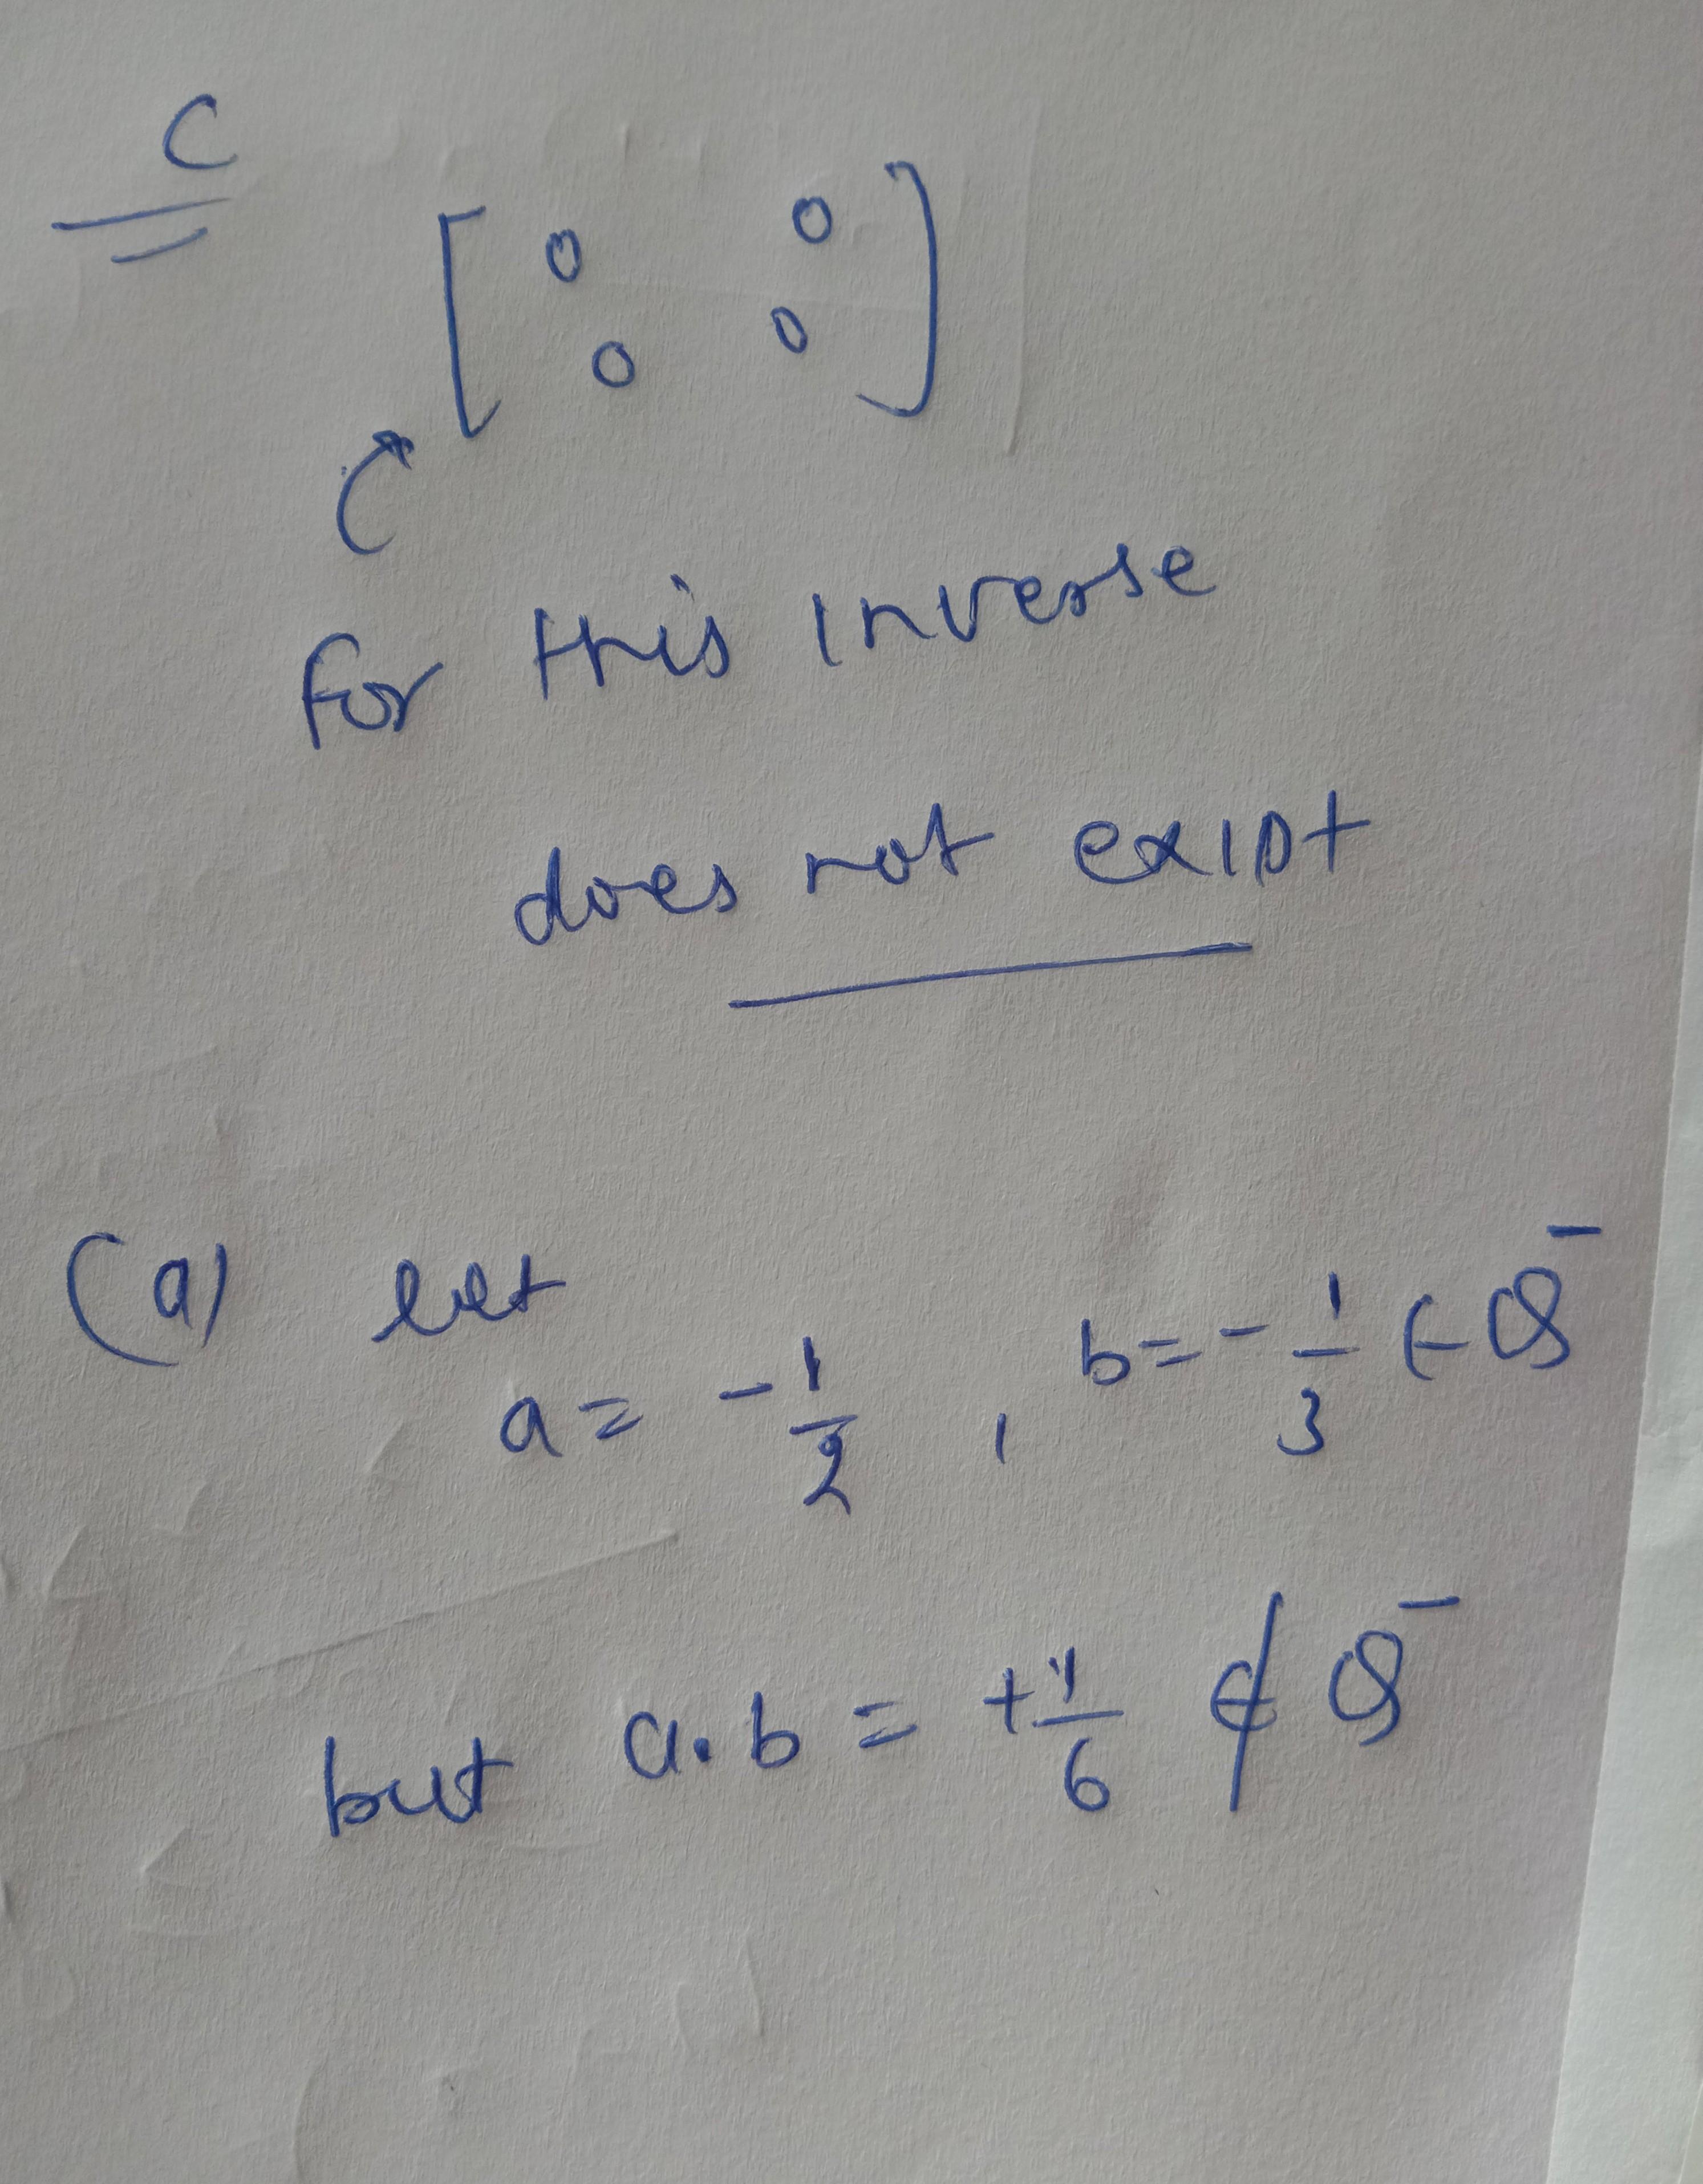 C
[ 0 0
0 0 ]
for this inverse
does not exist
(a) let
a = -1/2 , b = -1/3 ∈ Q⁻
but a.b = +1/6 ∉ Q⁻